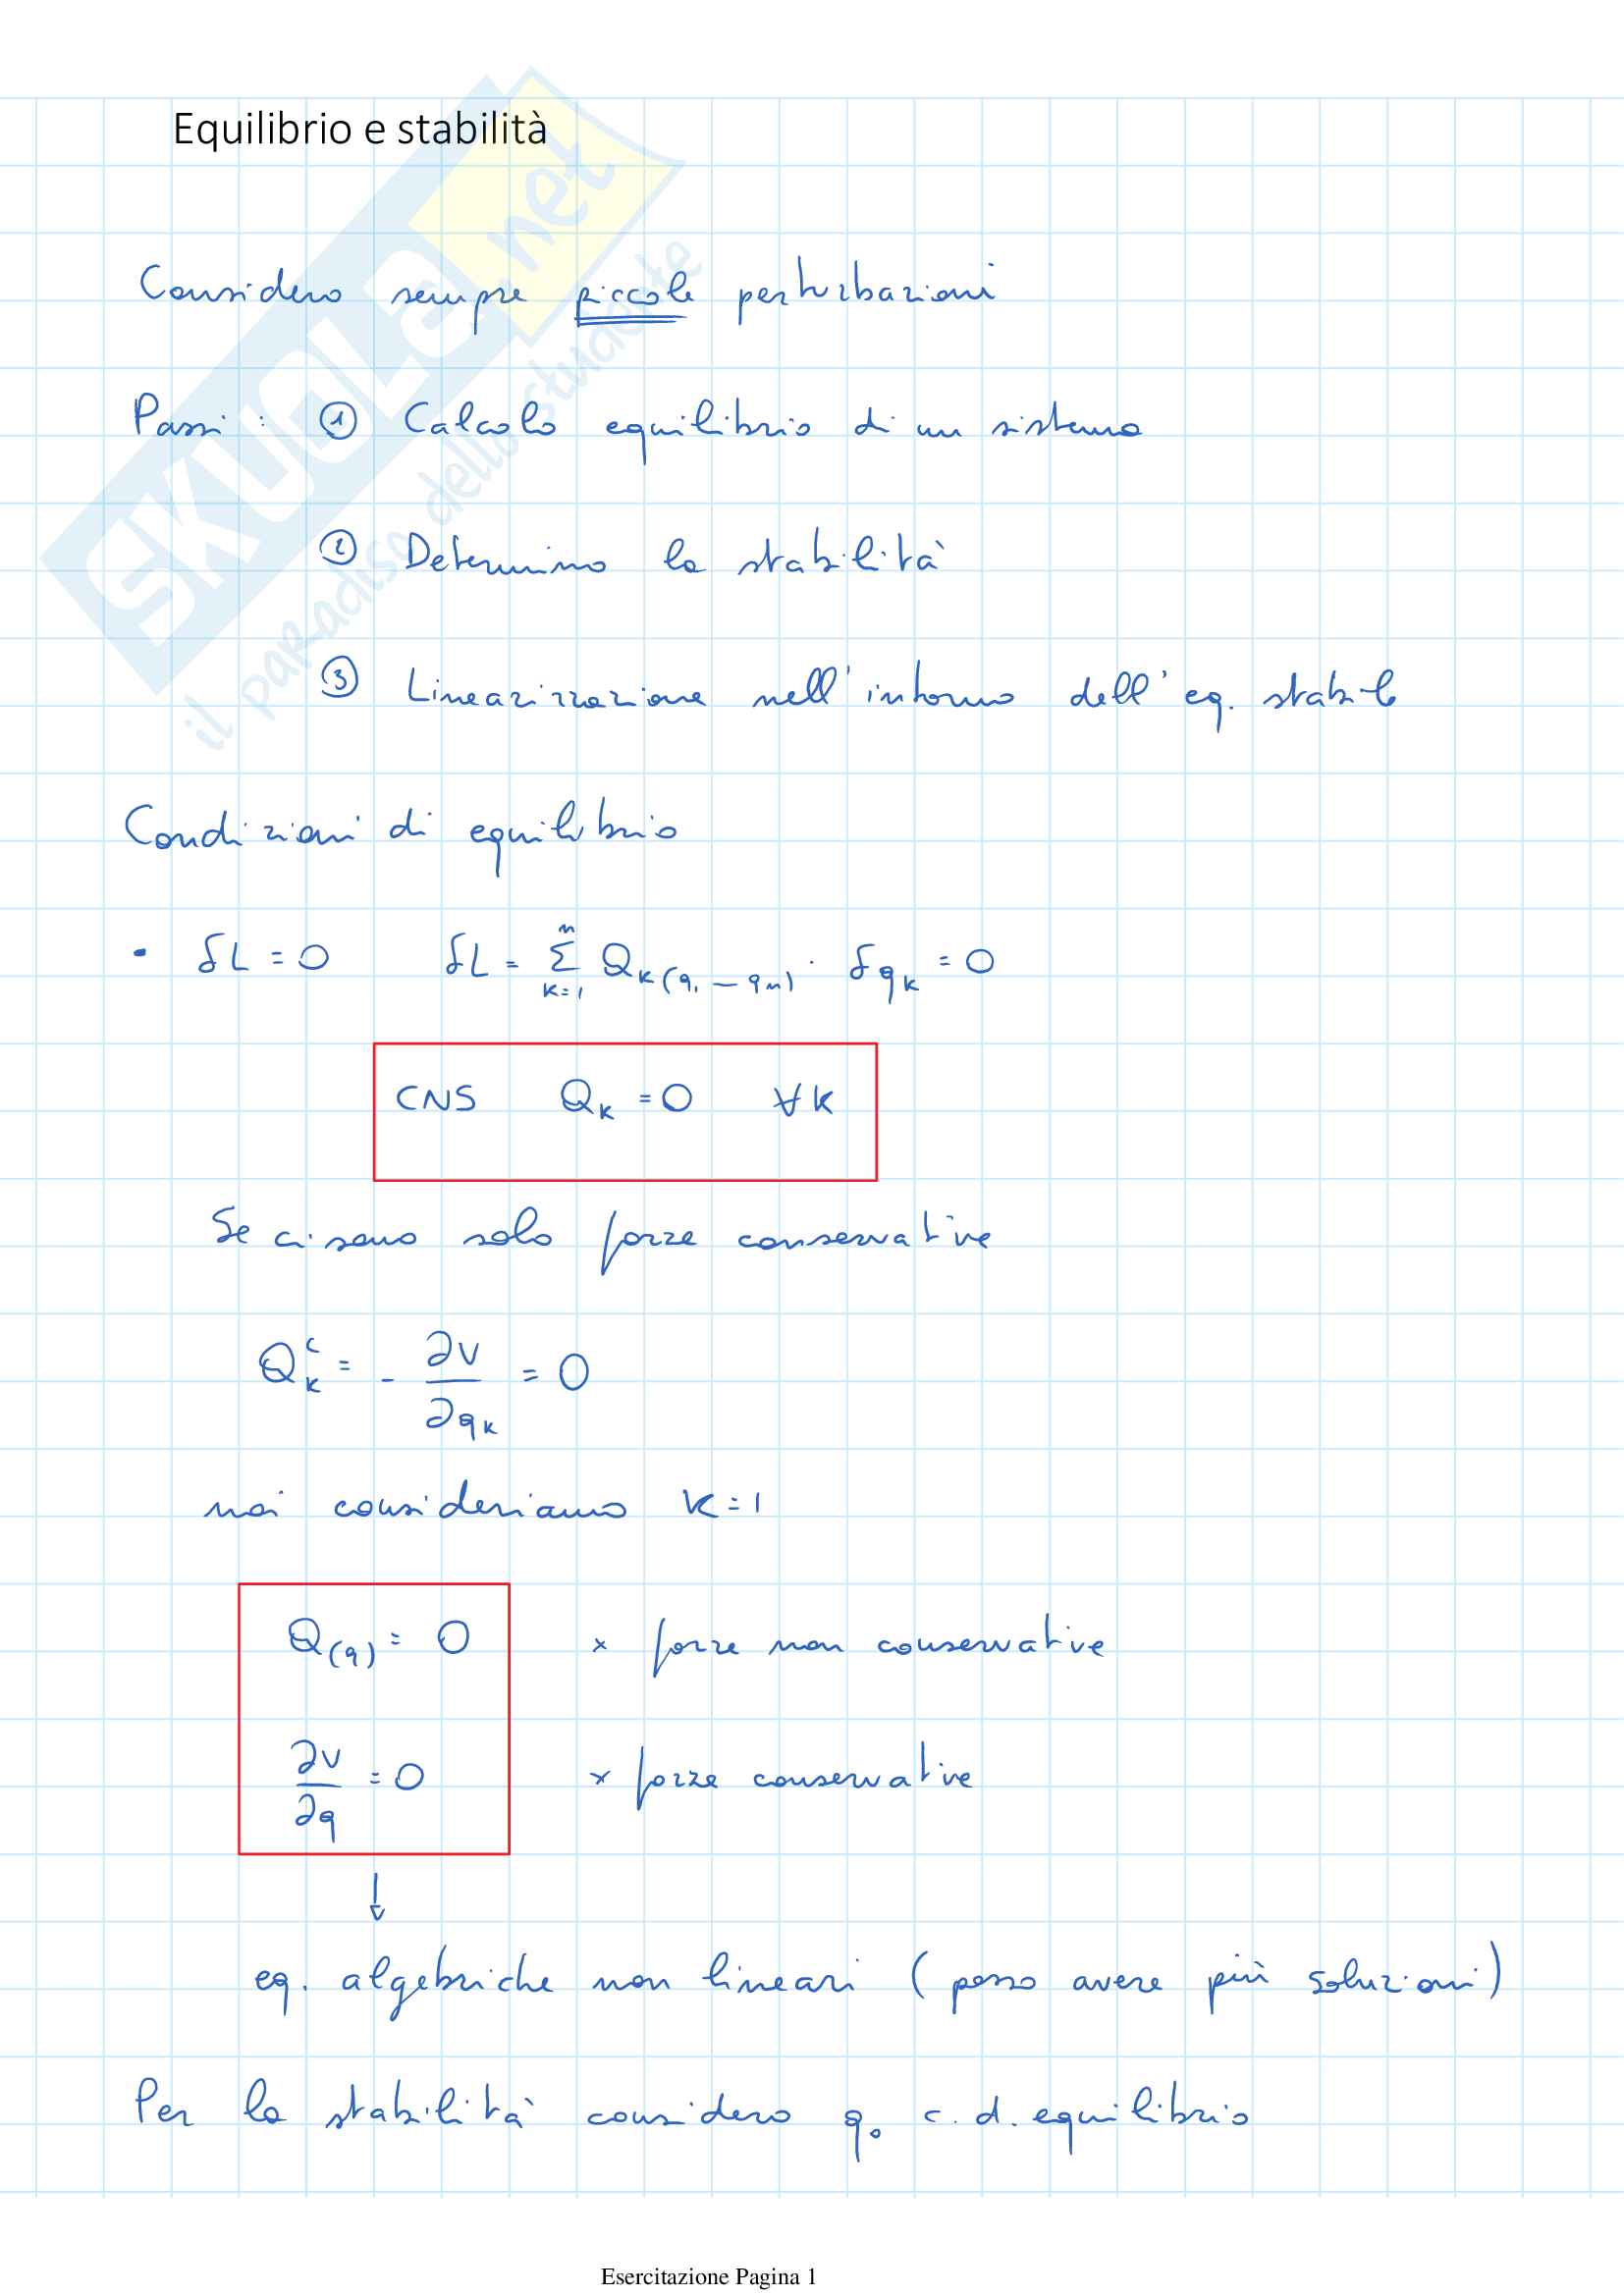 Equilibrio e stabilità
SKUOLA.net
il paradiso dello studente
Considero sempre piccole perturbazioni
Passi : ① Calcolo equilibrio di un sistema
② Determino la stabilità
③ Linearizzazione nell'intorno dell'eq. stabile
Condizioni di equilibrio
• δL = 0 δL = Σ_{k=1}^{n} Q_k(q₁ — q_n) · δq_k = 0
CNS Q_k = 0 ∀k
Se ci sono solo forze conservative
Q_k^c = - ∂V/∂q_k = 0
noi consideriamo K = 1
Q(q) = 0 × forze non conservative
∂V/∂q = 0 × forze conservative
↓
eq. algebriche non lineari (posso avere più soluzioni)
Per la stabilità considero q₀ c.d. equilibrio
Esercitazione Pagina 1